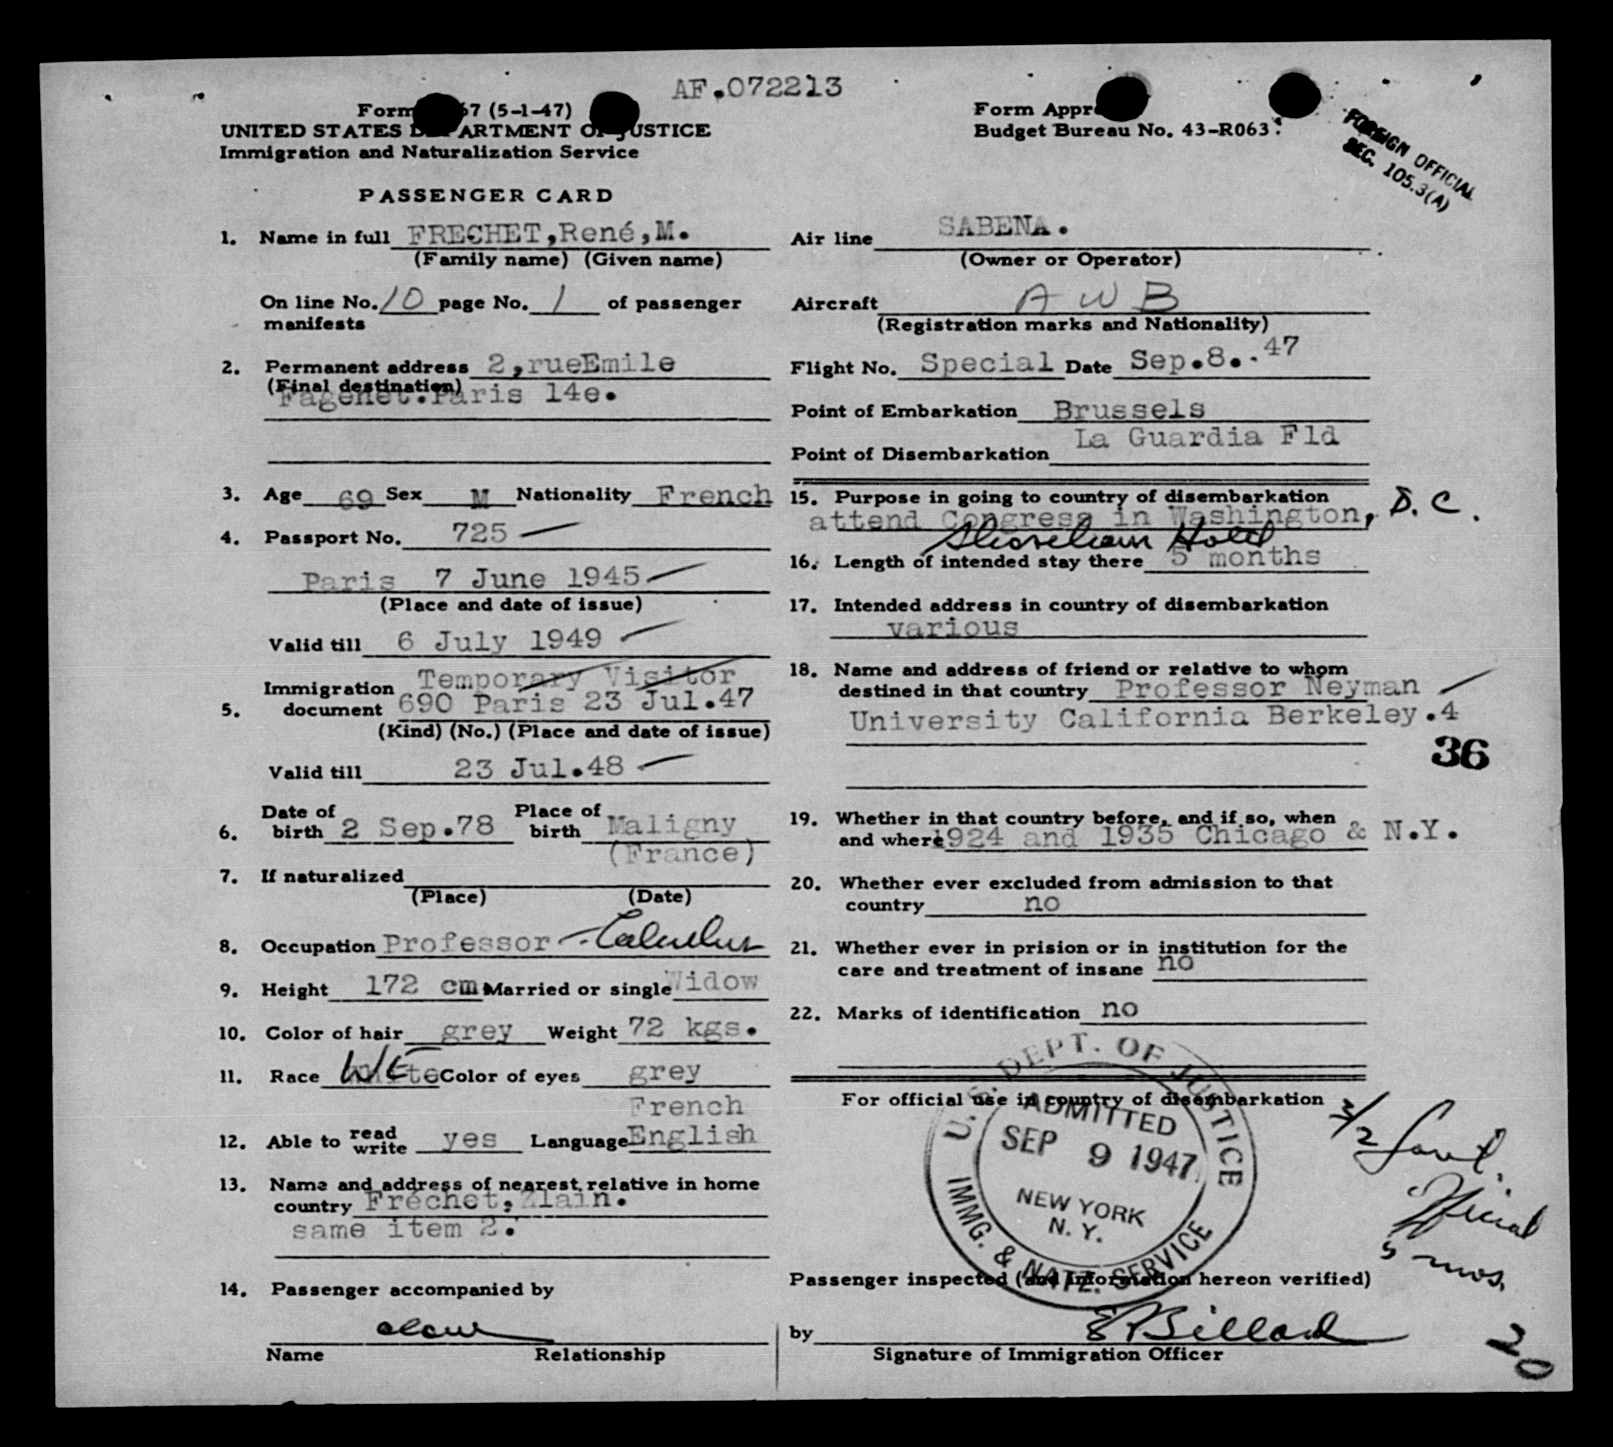 AF.072213
Form 67 (5-1-47)
UNITED STATES DEPARTMENT OF JUSTICE
Immigration and Naturalization Service
Form Appr
Budget Bureau No. 43-R063
FOREIGN OFFICIAL
SEC. 105.3(A)
PASSENGER CARD
1. Name in full FRECHET,René,M.
(Family name) (Given name)
On line No. 10 page No. 1 of passenger
manifests
2. Permanent address 2,rueEmile
(Final destination)
Fagenet.Paris 14e.
3. Age 69 Sex M Nationality French
4. Passport No. 725
Paris 7 June 1945
(Place and date of issue)
Valid till 6 July 1949
Temporary Visitor
5. Immigration document 690 Paris 23 Jul.47
(Kind) (No.) (Place and date of issue)
Valid till 23 Jul.48
6. Date of birth 2 Sep.78 Place of birth Maligny
(France)
7. If naturalized
(Place) (Date)
8. Occupation Professor - Calculus
9. Height 172 cm. Married or single Widow
10. Color of hair grey Weight 72 kgs.
11. Race WE Color of eyes grey
French
12. Able to read write yes Language English
13. Name and address of nearest relative in home
country Fréchet,
same item 2.
14. Passenger accompanied by
alone
Name Relationship
Air line SABENA.
(Owner or Operator)
Aircraft A W B
(Registration marks and Nationality)
Flight No. Special Date Sep.8.. 47
Point of Embarkation Brussels
La Guardia Fld
Point of Disembarkation
15. Purpose in going to country of disembarkation
attend Congress in Washington, D. C.
Shoreham Hotel
16. Length of intended stay there 5 months
17. Intended address in country of disembarkation
various
18. Name and address of friend or relative to whom
destined in that country Professor Neyman
University California Berkeley.4
36
19. Whether in that country before, and if so, when
and where 1924 and 1935 Chicago & N.Y.
20. Whether ever excluded from admission to that
country no
21. Whether ever in prision or in institution for the
care and treatment of insane no
22. Marks of identification no
For official use in country of disembarkation
U. S. DEPT. OF JUSTICE
ADMITTED
SEP 9 1947
NEW YORK
N. Y.
IMMG. & NATZ. SERVICE
3/2 Govt.
Official
5 mos.
Passenger inspected (and information hereon verified)
by E Billard
Signature of Immigration Officer
20